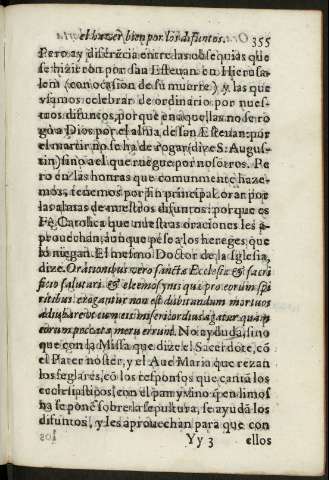 el hazer bien por los difuntos. 355
Pero ay diferẽcia entre las obsequias que
se hizieron por san Esteuan en Hierusa-
lem (con ocasion de su muerte) y las que
vsamos celebrar de ordinario por nues-
tros difuntos, porque en aquellas no se ro
gò a Dios por el alma de san Æsteuan: por
el martir no se ha de rogar (dize S. Augus-
tin) sino a el que ruegue por nosotros. Pe
ro en las honras que comunmente haze-
mos, tenemos por fin principal orar por
las almas de nuestros difuntos: porque es
Fè Catolica que nuestras oraciones les a-
prouechan, aunque pese a los hereges que
lo niegan. El mesmo Doctor de la Iglesia,
dize. Orationibus vero sanctæ Ecclesiæ & sacri
ficio salutari & eleemosynis quæ pro eorum spi
ritibus erogantur non est dubitandum mortuos
adiubare vt cum eis misericordius agatur quam
eorum peccata meruerunt. No ay duda, sino
que con la Missa que dize el Sacerdote, cõ
el Pater noster, y el Aue Maria que rezan
los seglares, cõ los responsos que cantã los
ecclesiasticos, con el pan y vino q en limos
na se pone sobre la sepultura, se ayudã los
difuntos, y les aprouechan para que con
Yy 3 ellos